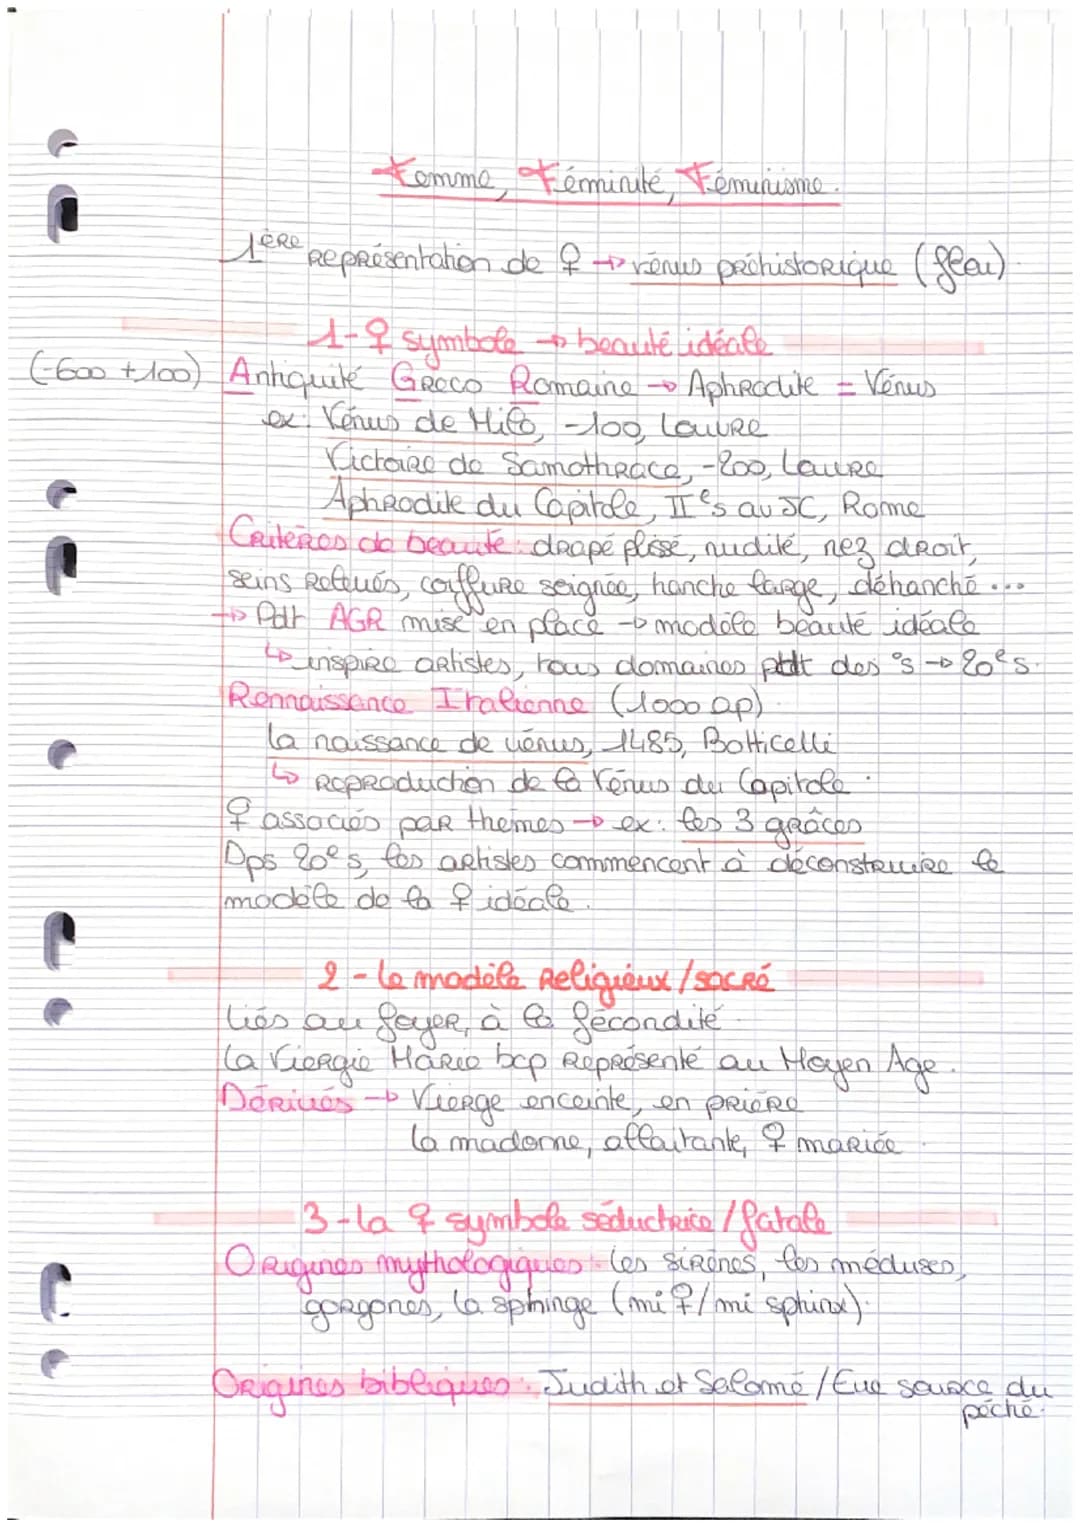 Femme, Féminité, Féminisme.
1ÈRE représentation de ♀ → vénus préhistorique (fleau)
1-♀ symbole → beauté idéale
(-600 +100) Antiquité Greco Romaine → Aphrodite = Vénus
ex: Vénus de Milo, -100, Louvre
Victoire de Samothrace, -200, Louvre
Aphrodite du Capitole, IIe s av JC, Rome
Critères de beauté: drapé plissé, nudité, nez droit,
seins relevés, coiffure seignée, hanche large, déhanché ...
→ Pdt AGR mise en place → modèle beauté idéale
↳ inspire artistes, tous domaines pdt des °s → 20e s.
Rennaissance Italienne (1000 ap)
la naissance de vénus, 1485, Botticelli
↳ reproduction de la Vénus du Capitole.
♀ associés par themes → ex: les 3 grâces
Dps 20e s, les artistes commencent à déconstruire le
modèle de la ♀ idéale.
2 - le modèle religieux / sacré
liés au foyer, à la fécondité
la Viergie Marie bcp représenté au Moyen Age.
Dérivés → Vierge enceinte, en prière
la madonne, allaitante, ♀ mariée.
3 - la ♀ symbole séductrice / fatale
Origines mythologiques: les sirènes, les méduses,
gorgones, la sphinge (mi ♀/mi sphinx).
Origines bibliques: Judith et Salomé / Eve source du
péché.